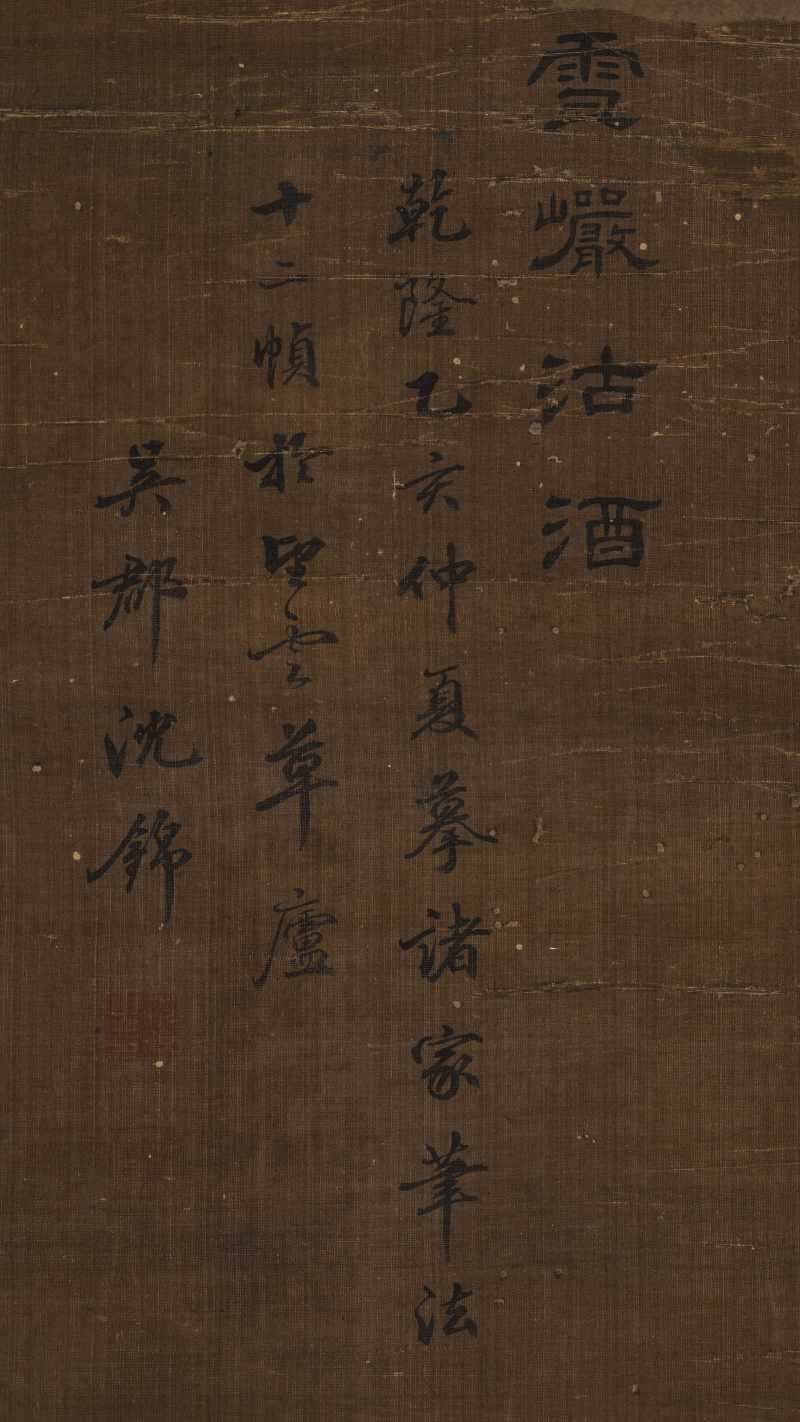 雪巖沽酒
乾隆乙亥仲夏摹諸家筆法
十二幀於望雲草廬
吳郡沈錦